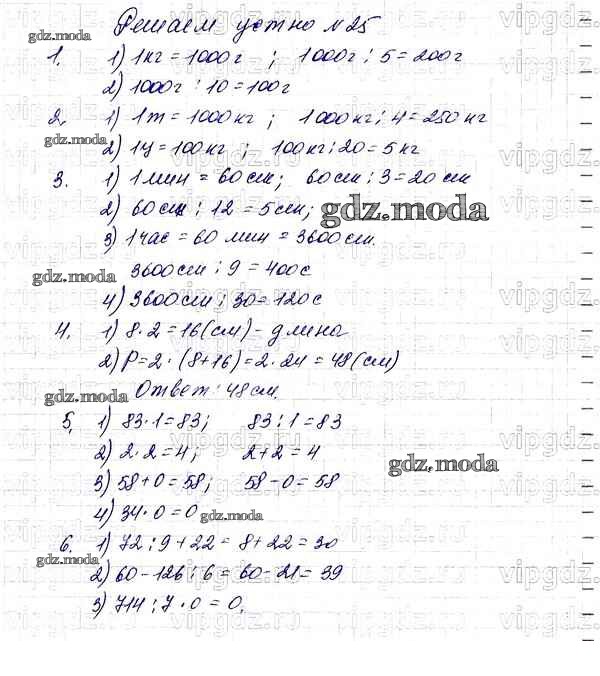 Решаем устно №25
1. 1) 1кг = 1000г ; 1000г : 5 = 200г
2) 1000г : 10 = 100г
2. 1) 1т = 1000кг ; 1000кг : 4 = 250 кг
2) 1ц = 100кг ; 100кг : 20 = 5 кг
3. 1) 1 мин = 60 сек ; 60 сек : 3 = 20 сек
2) 60 сек : 12 = 5 сек ;
3) 1 час = 60 мин = 3600 сек.
3600 сек : 9 = 400 с
4) 3600 сек : 30 = 120 с
4. 1) 8 · 2 = 16 (см) – длина
2) P = 2 · (8 + 16) = 2 · 24 = 48 (см)
Ответ: 48 см.
5. 1) 83 · 1 = 83 ; 83 : 1 = 83
2) 2 · 2 = 4 ; 2 + 2 = 4
3) 58 + 0 = 58 ; 58 – 0 = 58
4) 34 · 0 = 0
6. 1) 72 : 9 + 22 = 8 + 22 = 30
2) 60 – 126 : 6 = 60 – 21 = 39
3) 714 : 7 · 0 = 0.
gdz.moda
vipgdz.com